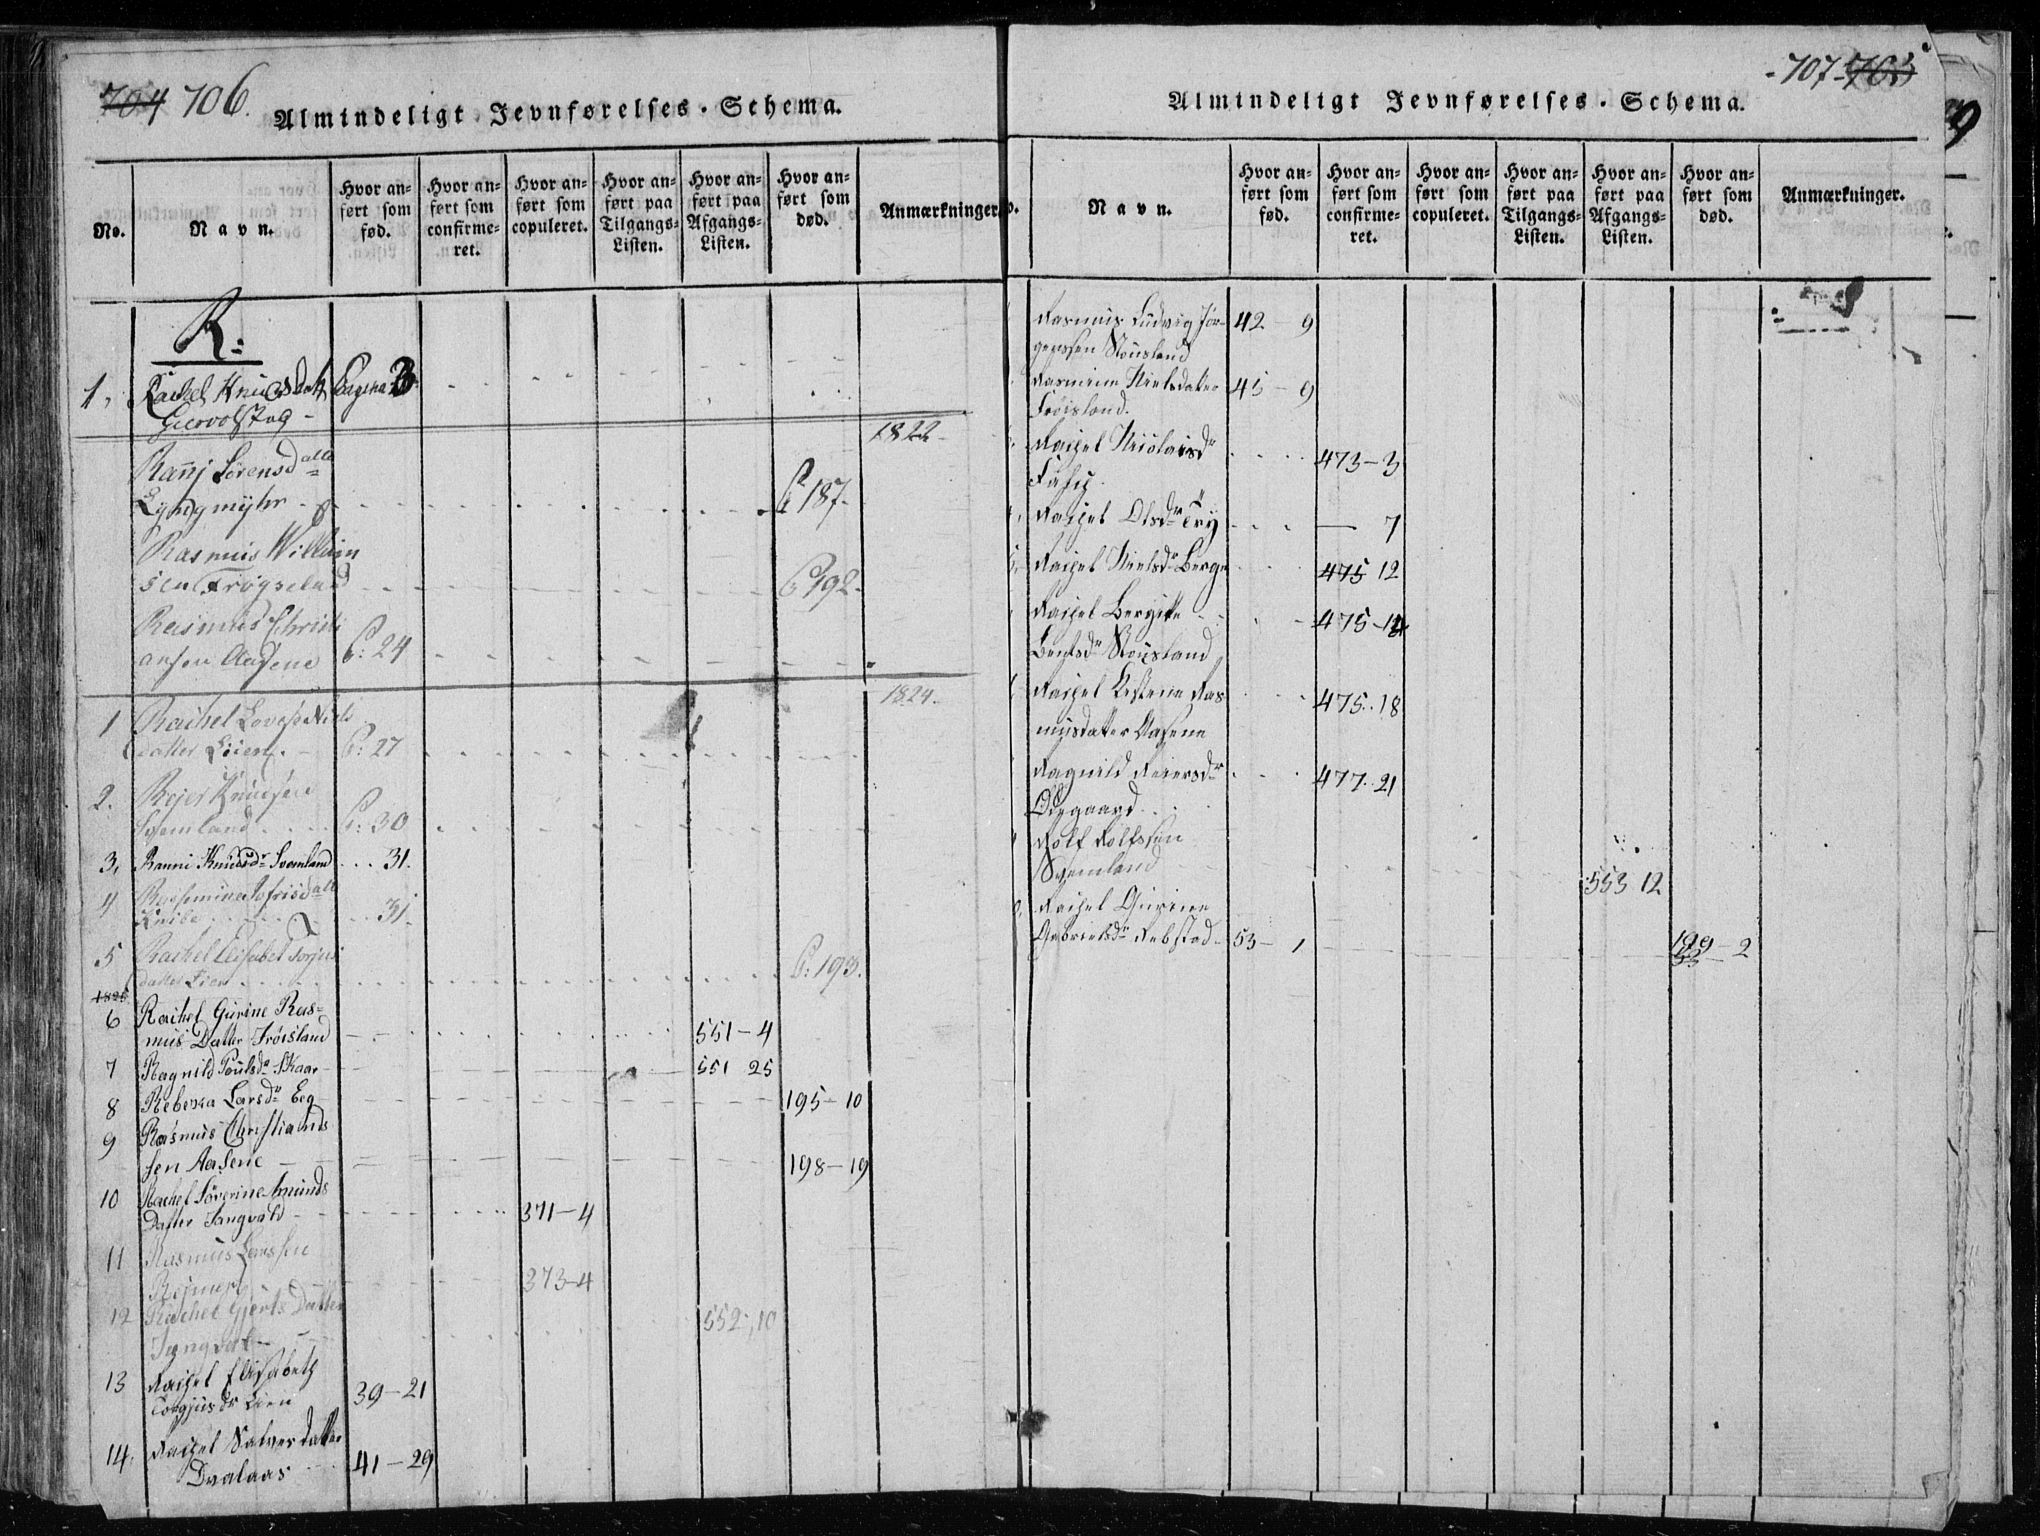 704 706.
Almindeligt Jevnførelses-Schema.
No.
Navn.
Hvor anført som fød.
Hvor anført som confirmeret.
Hvor anført som copuleret.
Hvor anført paa Tilgangs-Listen.
Hvor anført paa Afgangs-Listen.
Hvor anført som død.
Anmærkninger.
R:
1, Rachel Knudsdatt Pagina 3
1822
Sørensdatte
Lyngmyhr P 187.
Rasmus William
sen Frøysland P 192.
Rasmus Christi
ansen Aasene P: 24
1824.
1 Rachel Lovise Niels
datter Lien. P: 27
2. Rejer Knudsen
Svemland P: 30
3, Ranni Knudsdr Svemland 31.
4 datt
Knibe 31.
5 Rachel Elisabet Torjus
datter Lien P: 193.
1825
6 Rachel Gurine Ras=
mus Datter Frøisland 551-4
7 Ragnild Poulsdr Skaar 551 25
8 Rebecca Larsdr Eeg 195-10
9 Rasmus Christians
sen Aasene 198-19
10 Rachel Sörerine Amunds
Datter Jangvald 371-4
11 Rasmus Larssen
373-4
12 Rachel Gjerts Datter
552,10
13 Rachel Elisabeth
Torgjusdr Lien 39-21
14. Rachel Salvesdatter
Dvalaas 41-29
-707-705
Almindeligt Jevnførelses-Schema.
Navn.
Hvor anført som fød.
Hvor anført som confirmeret.
Hvor anført som copuleret.
Hvor anført paa Tilgangs-Listen.
Hvor anført paa Afgangs-Listen.
Hvor anført som død.
Anmærkninger.
Rasmus Ludvig Jør-
genssen Stousland 42-9
Rasmine Nielsdatter 45-9
Frøisland.
Rachel Nicolaisdr 473-3
Rachel Olsdr Try 7
Rachel Nielsdr Berge 475 12
Rachel Bergitte 475-14
Bentsdr Stousland
Rachel Kistine Ras 475..18
musdatter Aasene
Ragnild Reiersdr 477..21
Ødegaard
Rolf Rolfssen
Svemland 553 12
Rachel Gurine
Gabrielsdr Rebstad 53-1 199-2